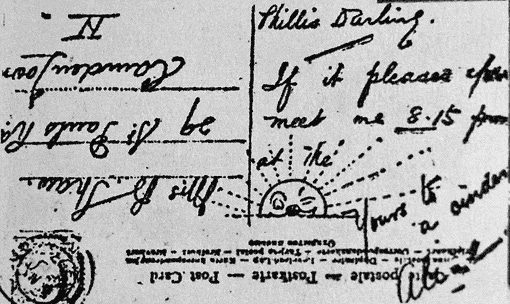 Phillis Darling.
If it pleases you
meet me 8.15 pm
at the
Yours to
a cinder
Mrs B. Shaw.
29 St. Pauls Rd
Camden Town
N.
postale — Postkarte — Post Card